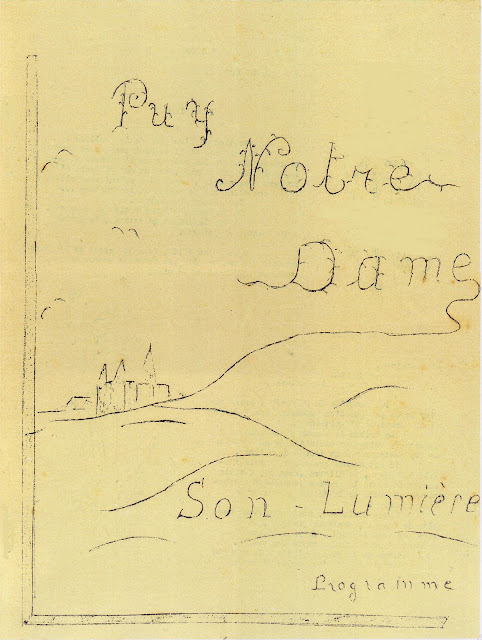 Puy
Notre
Dame
Son - Lumière
Programme